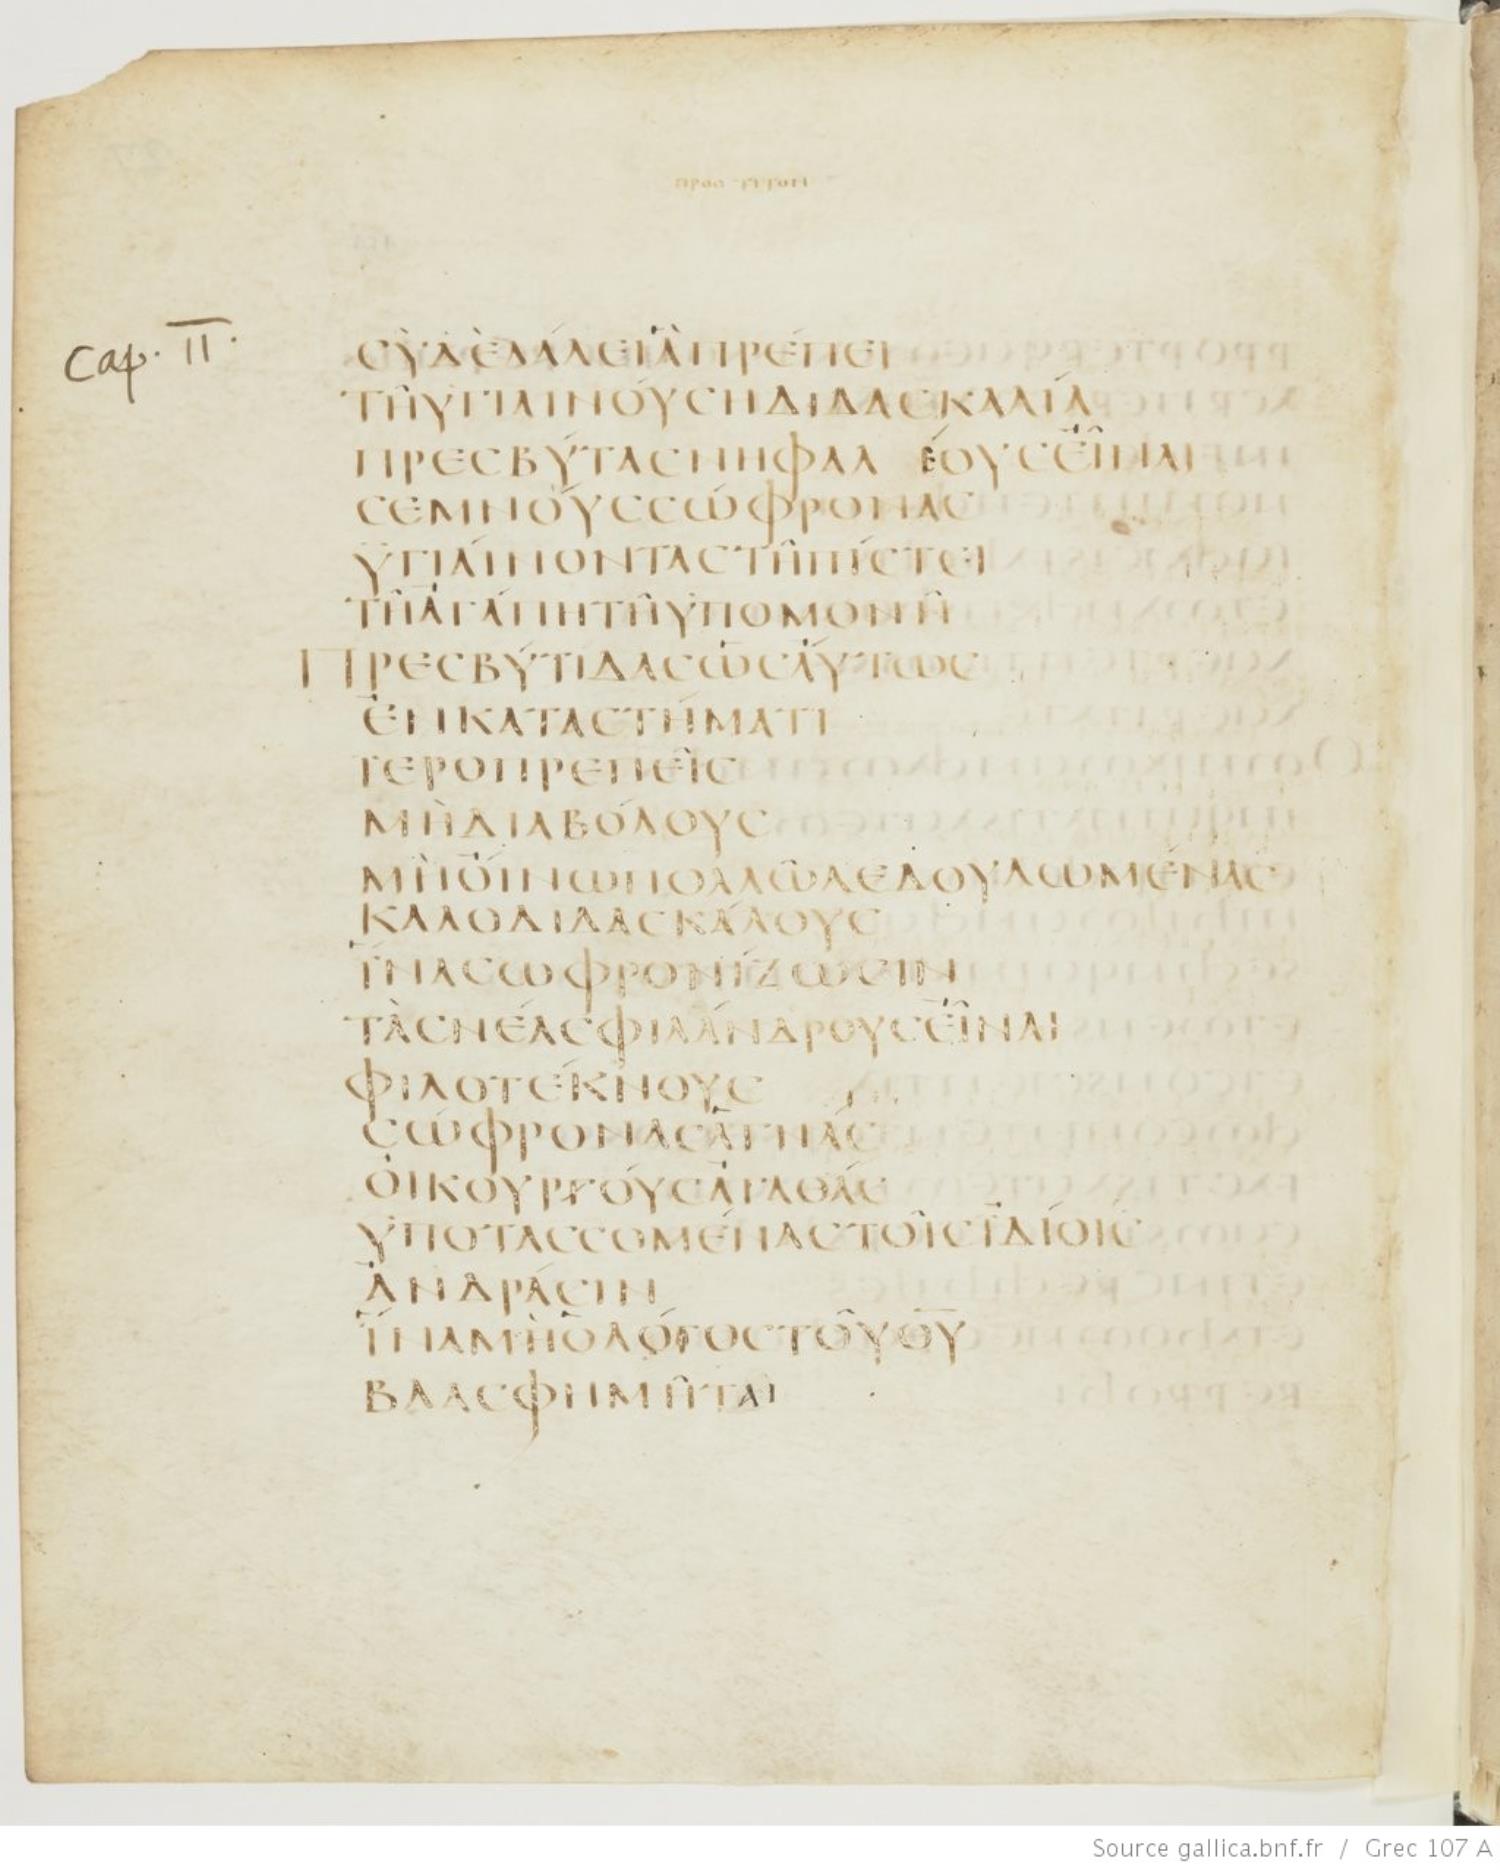 ΠΡΟΣ ΤΙΤΟΝ
Cap. II.
ϹΥΔΕΛΑΛΕΙΑΠΡΕΠΕΙ
ΤΗΥΓΙΑΙΝΟΥϹΗΔΙΔΑϹΚΑΛΙΑ
ΠΡΕϹΒΥΤΑϹΝΗΦΑΛ ΕΟΥϹΕΙΝΑΙ
ϹΕΜΝΟΥϹϹΩΦΡΟΝΑϹ
ΥΓΙΑΙΝΟΝΤΑϹΤΗΠΙϹΤΕΙ
ΤΗΑΓΑΠΗΤΗΥΠΟΜΟΝΗ
ΠΡΕϹΒΥΤΙΔΑϹΩϹΑΥΤΩϹ
ΕΝΚΑΤΑϹΤΗΜΑΤΙ
ΙΕΡΟΠΡΕΠΕΙϹ
ΜΗΔΙΑΒΟΛΟΥϹ
ΜΗΟΙΝΩΠΟΛΛΩΔΕΔΟΥΛΩΜΕΝΑϹ
ΚΑΛΟΔΙΔΑϹΚΑΛΟΥϹ
ΙΝΑϹΩΦΡΟΝΙΖΩϹΙΝ
ΤΑϹΝΕΑϹΦΙΛΑΝΔΡΟΥϹΕΙΝΑΙ
ΦΙΛΟΤΕΚΝΟΥϹ
ϹΩΦΡΟΝΑϹΑΓΝΑϹ
ΟΙΚΟΥΡΓΟΥϹΑΓΑΘΑϹ
ΥΠΟΤΑϹϹΟΜΕΝΑϹΤΟΙϹΙΔΙΟΙϹ
ΑΝΔΡΑϹΙΝ
ΙΝΑΜΗΟΛΟΓΟϹΤΟΥΘΥ
ΒΛΑϹΦΗΜΗΤΑΙ
Source gallica.bnf.fr / Grec 107 A